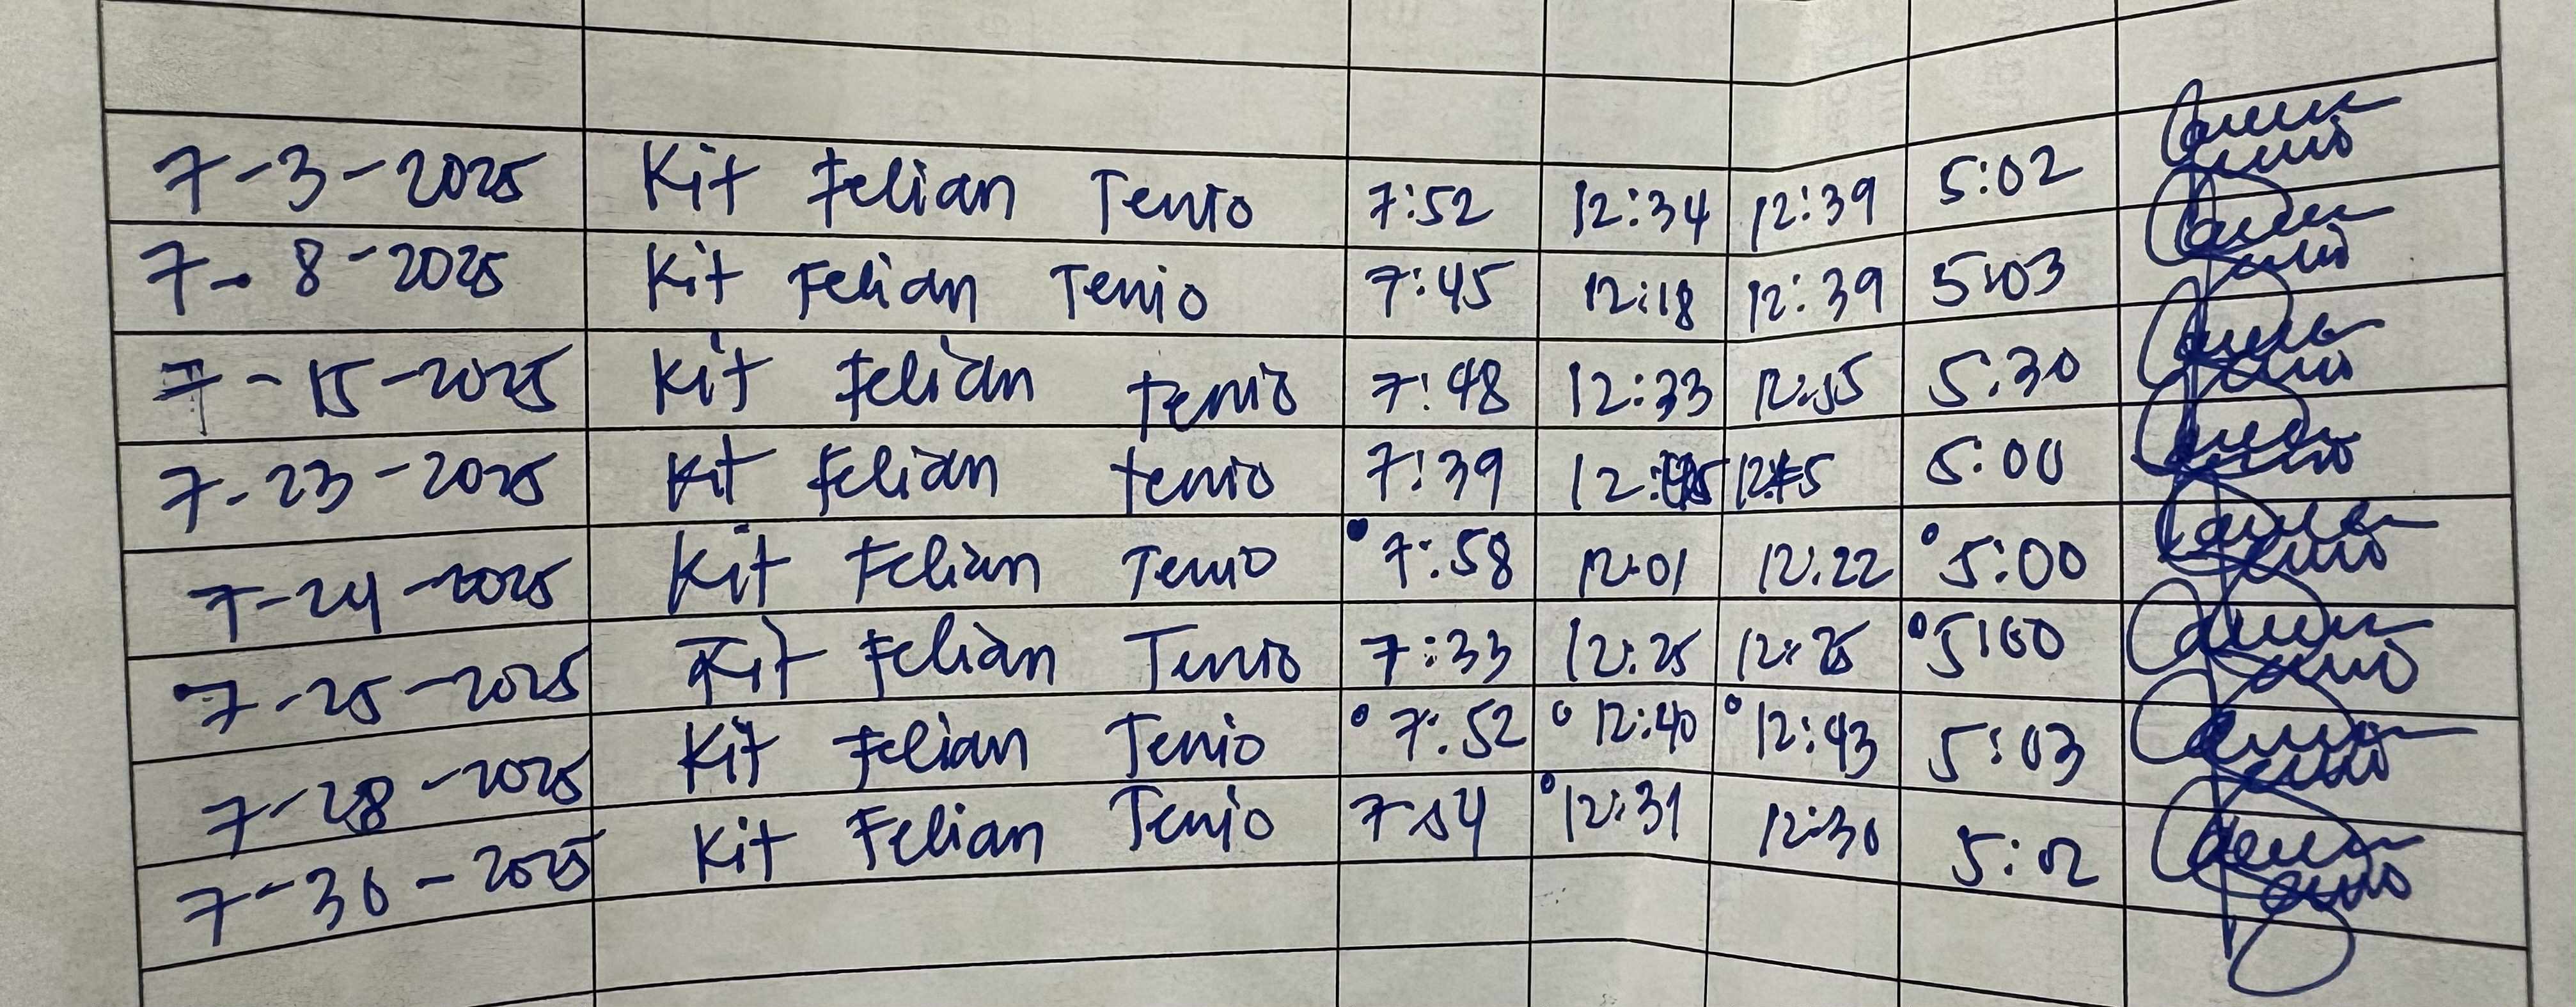 7-3-2025 Kit Felian Tenio 7:52 12:34 12:39 5:02
7-8-2025 Kit Felian Tenio 7:45 12:18 12:39 5:03
7-15-2025 Kit Felian Tenio 7:48 12:33 5:30
7-23-2025 Kit Felian tenio 7:39 5:00
7-24-2025 Kit Felian Tenio 7:58 12:01 12:22 5:00
7-25-2025 Kit Felian Tenio 7:33 12:25 12:25 5:00
7-28-2025 Kit Felian Tenio 7:52 12:40 12:43 5:03
7-30-2025 Kit Felian Tenio 12:31 12:30 5:02